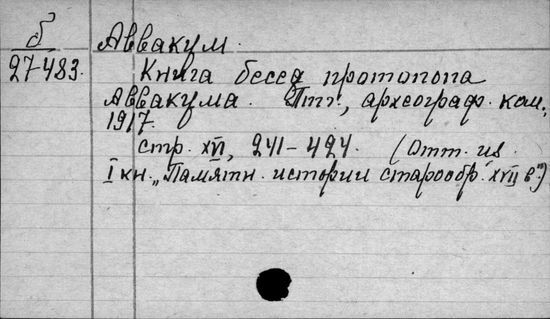 б Аввакум.
27-483. Книга бесед протопопа
Аввакума. Птг., археограф. ком.,
1917.
стр. XVI, 241-424. (Отт. из
I кн. „Памятн. истории старообр. XVII в.")